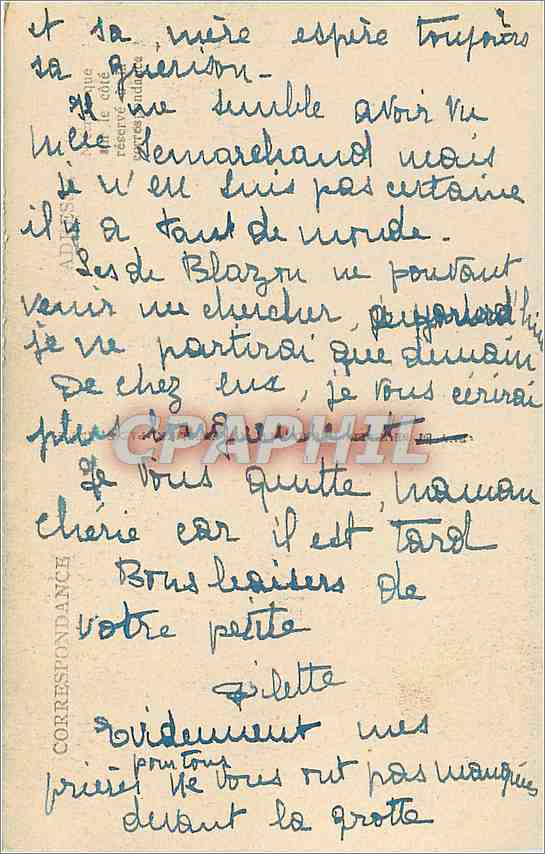 et sa mère espère toujours
sa guerison -
Il me semble avoir vu
Mlle Lemarchand mais
je n'en suis pas certaine
il y a tant de monde -
Les de Blazon ne pouvant
venir me chercher aujourd'hui
je ne partirai que demain
De chez eux, je vous écrirai
plus longuement -
Je vous quitte, maman
chérie car il est tard
Bons baisers de
votre petite
Gilette
Evidemment mes
pour tous
prières ne vous ont pas manqués
devant la grotte
CPARPHIL
CORRESPONDANCE
ADRESSE
que
sur le côté
réservé
correspondance